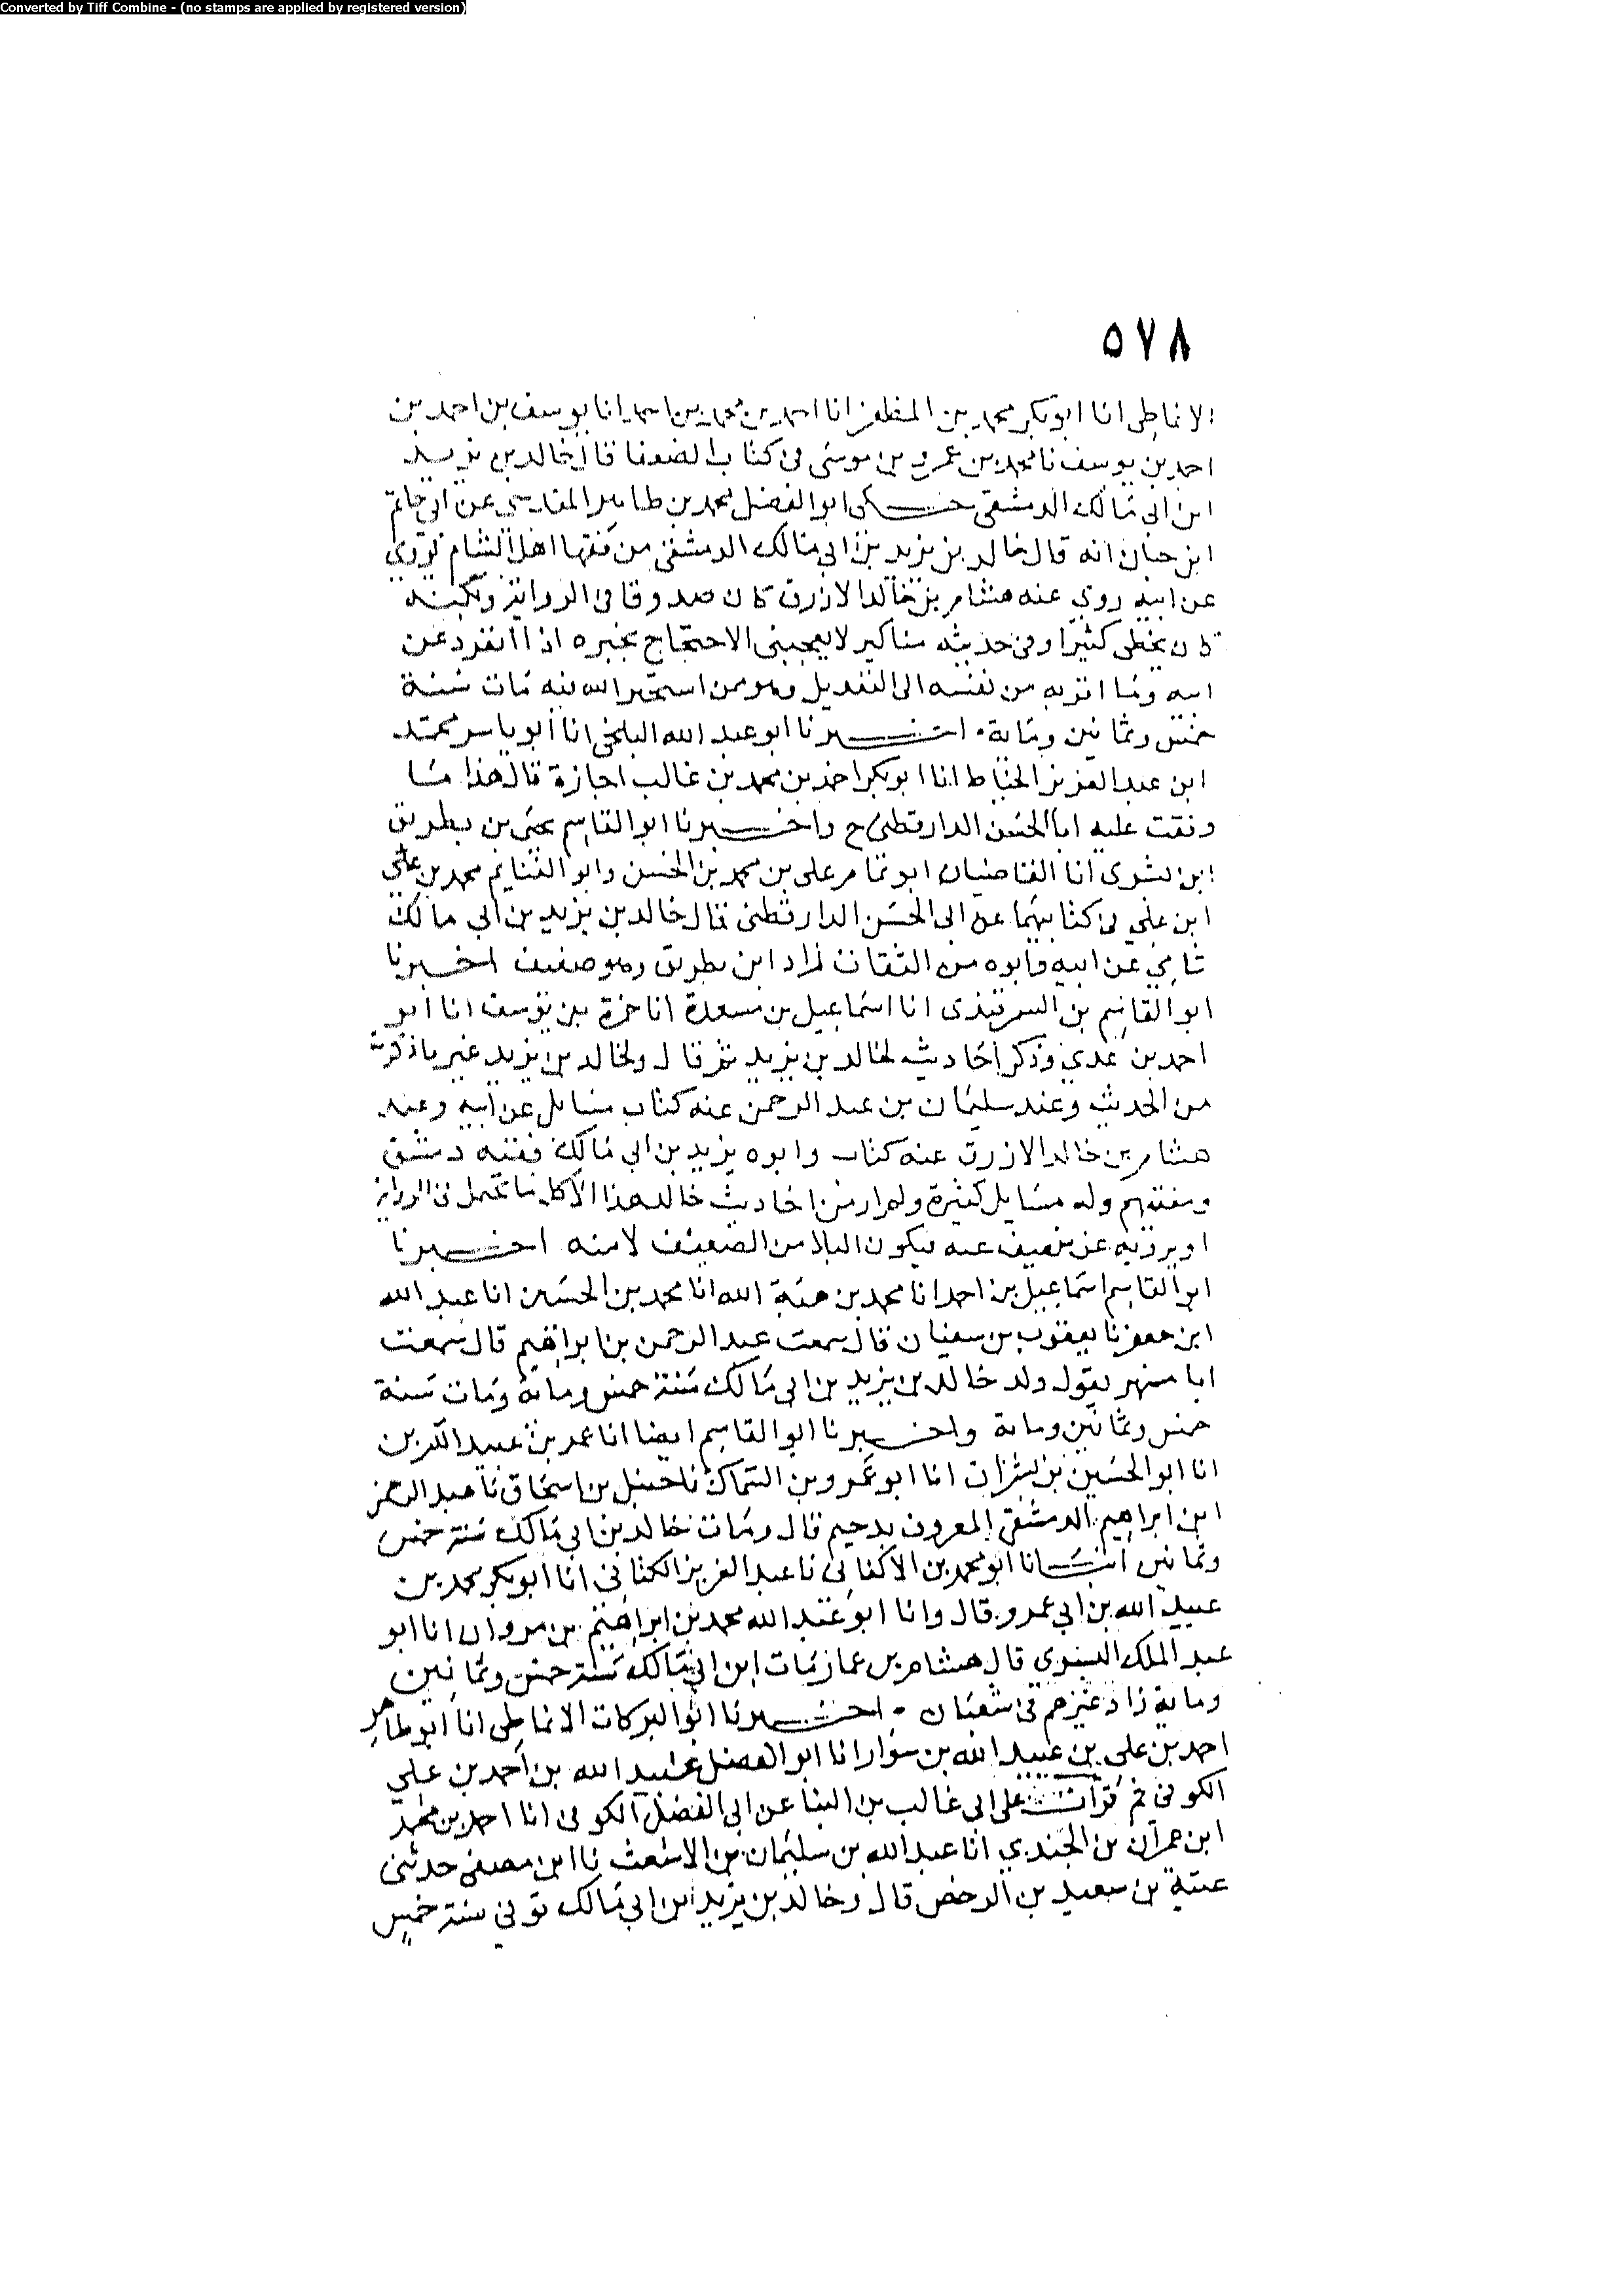 Converted by Tiff Combine - (no stamps are applied by registered version)
٥٧٨
الانماطى انا ابو بكر محمد بن المظفر انا احمد بن محمد بن احمد انا يوسف بن احمد بن
احمد بن يوسف نا محمد بن عمرو بن موسى فى كتاب الضعفا قال خالد بن يزيد
ابن ابى مالك الدمشقى حكى ابو الفضل محمد بن طاهر المقدسى عن ابى حاتم
ابن حبان انه قال خالد بن يزيد بن ابى مالك الدمشقى من فقها اهل الشام يروي
عن ابيه روي عنه هشام بن خالد الازرق كان صدوقا فى الرواية ولكنه
كان يخطى كثيرا وفى حديثه مناكير لا يعجبنى الاحتجاج بخبره اذا انفرد عن
ابيه وما اقربه من نفسه الى التعديل وهو ممن استخير الله فيه مات سنة
خمس وثمانين وماية٠ اخبرنا ابو عبد الله البلخى انا ابو ياسر محمد
ابن عبد العزيز الخياط انا ابو بكر احمد بن محمد بن غالب اجازة قال هذا ما
وافقت عليه ابا الحسن الدارقطنى ح واخبرنا ابو القاسم يحيى بن بطريق
ابن بشرى انا القاضيان ابو تمام على بن محمد بن الحسن وابو الغنايم محمد بن علي
ابن علي فى كتابيهما عن ابى الحسن الدارقطنى قال خالد بن يزيد بن ابي مالك
شامي عن ابيه وابوه من الثقات زاد ابن بطريق وهو ضعيف اخبرنا
ابو القاسم بن السمرقندى انا اسماعيل بن مسعدة انا حمزة بن يوسف انا ابو
احمد بن عدي وذكر احاديث لخالد بن يزيد ثم قال ولخالد بن يزيد غير ما ذكرت
من الحديث وعند سليمان بن عبد الرحمن عنه كتاب مسايل عن ابيه وعند
هشام بن خالد الازرق عنه كتاب وابوه يزيد بن ابي مالك فقيه دمشق
ومفتيهم وله مسايل كثيرة ولم ار من احاديث خالد هذا الا كل ما يحتمل فى الرواية
او يرويه عن ضعيف عنه فيكون البلا من الضعيف لا منه اخبرنا
ابو القاسم اسماعيل بن احمد انا محمد بن هبة الله انا محمد بن الحسين انا عبد الله
ابن جعفر نا يعقوب بن سفيان قال سمعت عبد الرحمن بن ابراهيم قال سمعت
ابا مسهر يقول ولد خالد بن يزيد بن ابى مالك سنة خمس وماية ومات سنة
خمس وثمانين وماية واخبرنا ابو القاسم ايضا انا عمر بن عبيد الله بن
انا ابو الحسين بن بشران انا ابو عمرو بن السماك نا حنبل بن اسحاق نا عبد الرحمن
ابن ابراهيم الدمشقى المعروف بدحيم قال ومات خالد بن ابي مالك سنة خمس
وثمانين انبانا ابو محمد بن الاكفانى نا عبد العزيز الكتانى انا ابو بكر محمد بن
عبيد الله بن ابي عمرو قال وانا ابو عبد الله محمد بن ابراهيم بن مروان انا ابو
عبد الملك البسري قال هشام بن عمار مات ابن ابي مالك سنة خمس وثمانين
وماية زاد غيرهم فى شعبان ٠ اخبرنا ابو البركات الانماطى انا ابو طاهر
احمد بن على بن عبيد الله بن سوار انا ابو الفضل عبيد الله بن احمد بن علي
الكوفى ثم قرات على ابى غالب بن البنا عن ابي الفضل الكوفى انا احمد بن محمد
ابن عمران بن الجندي انا عبد الله بن سليمان بن الاشعث نا ابن مصفى حدثنى
عتبة بن سعيد بن الرخص قال وخالد بن يزيد ابن ابي مالك توفي سنة خمس